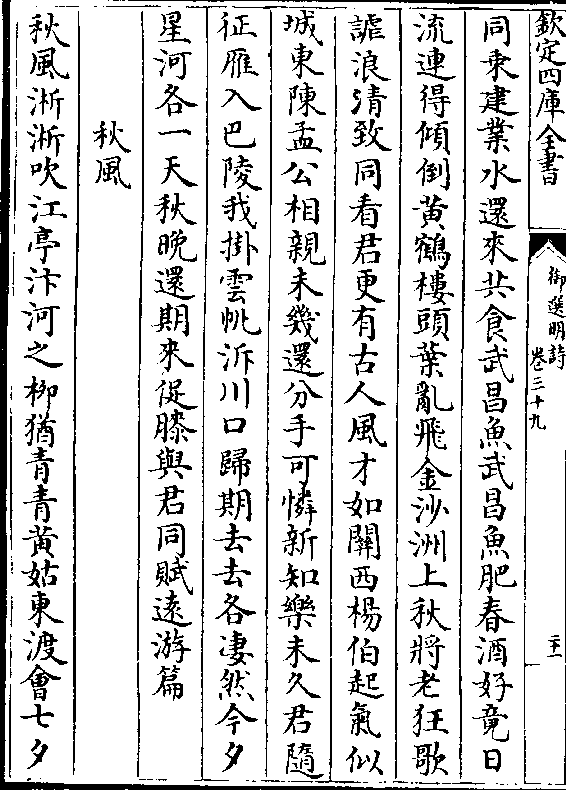 欽定四庫全書
御選明詩
卷三十九
二十一
同乘建業水還來共食武昌魚武昌魚肥春酒好竟日
流連得傾倒黃鶴樓頭葉亂飛金沙洲上秋將老狂歌
謔浪清致同看君更有古人風才如關西楊伯起氣似
城東陳孟公相親未幾還分手可憐新知樂未久君隨
征雁入巴陵我掛雲帆泝川口歸期去去各淒然今夕
星河各一天秋晚還期來促膝與君同賦遠游篇
秋風
秋風淅淅吹江亭汴河之柳猶青青黃姑東渡會七夕